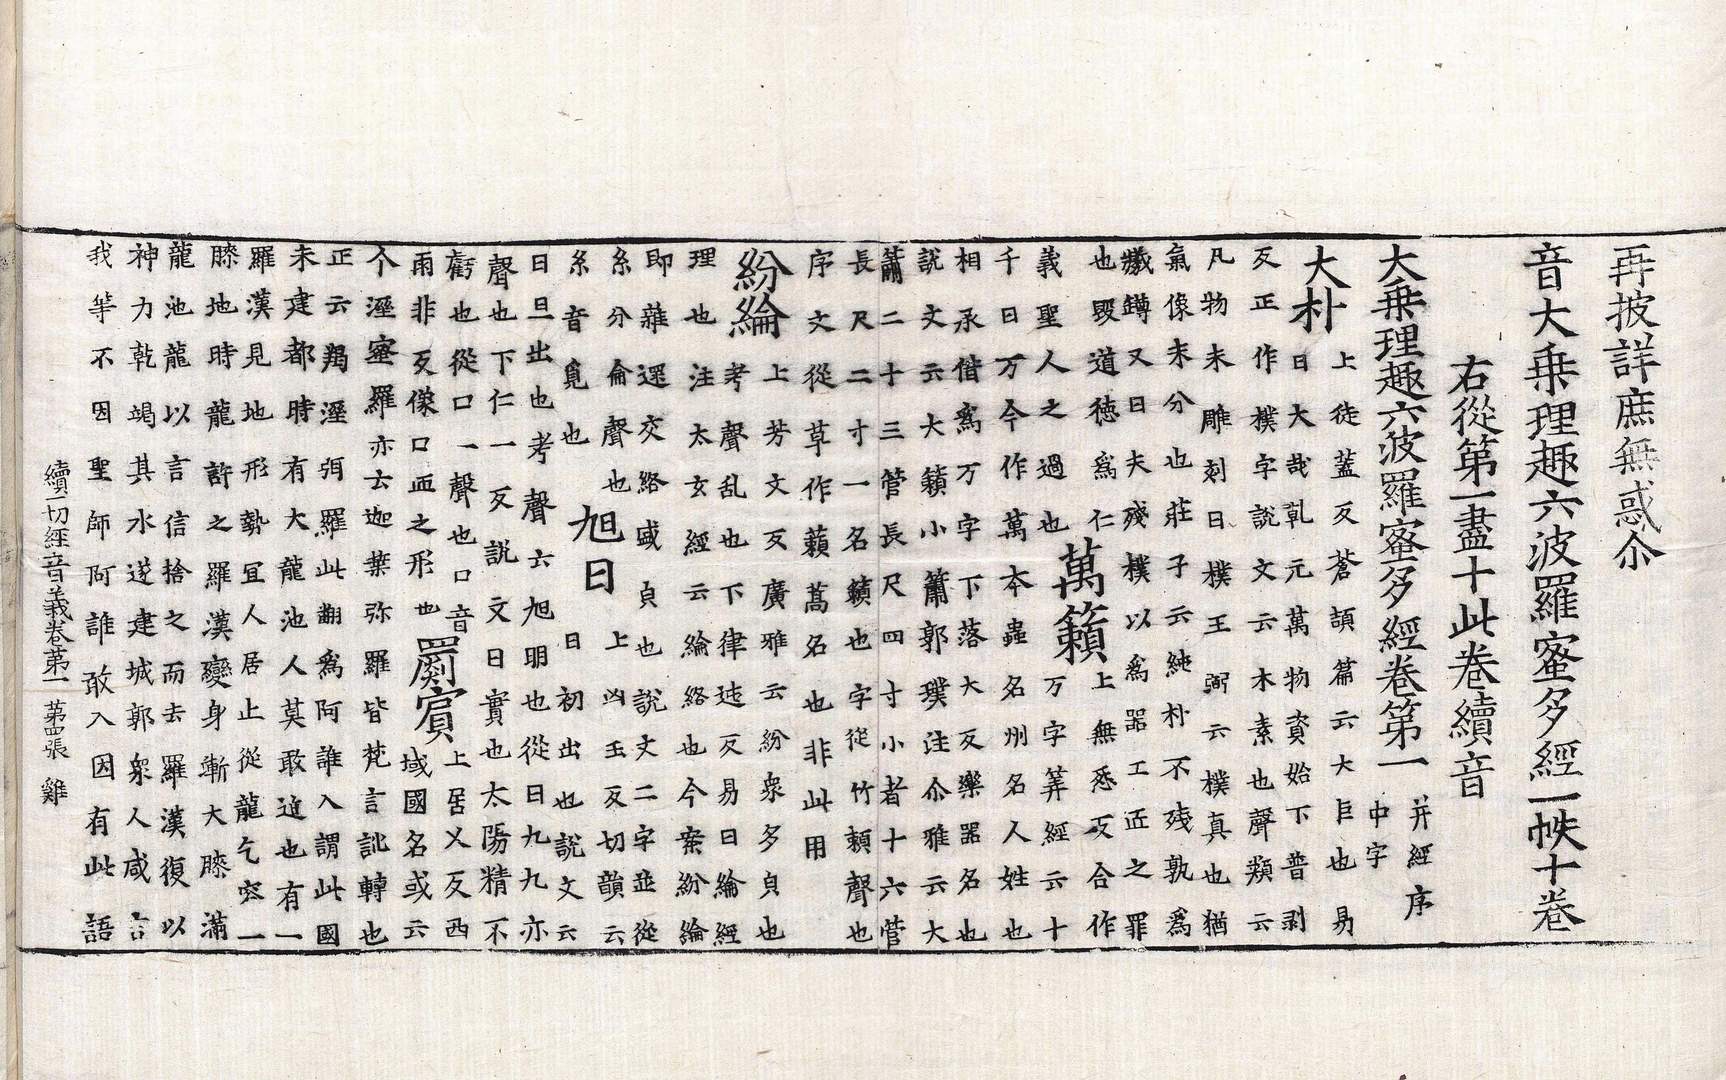 再披詳庶無惑尒
音大乗理趣六波羅蜜多經一帙十卷
右從第一盡十此卷續音
大乗理趣六波羅蜜多經卷第一
并經序
中字
大朴
上徒蓋反蒼頡篇云大巨也易
曰大哉乹元萬物資始下普剥
反正作樸字說文云木素也聲類云
凡物未雕刻曰樸王弼云樸真也猶
氣像未分也莊子云純朴不残孰爲
犧鐏又曰夫殘樸以爲器工匠之罪
也毀道徳爲仁
義聖人之過也
萬籟
上無悉反合作
万字筭經云十
千曰万今作萬本蟲名州名人姓也
相承偕爲万字下落大反樂器名也
說文云大籟小簫郭璞注尒雅云大
簫二十三管長尺四寸小者十六管
長尺二寸一名籟也字從竹頼聲也
序文從草作藾蒿名也非此用
紛綸
上芳文反廣雅云紛衆多皃也
考聲乱也下律迍反易曰綸經
理也注太玄經云綸絡也今案紛綸
即雜遝交絡盛皃也說文二字並從
糸分侖聲也
糸音覓也
旭日
上凶玉反切韻云
日初出也說文云
日旦出也考聲云旭明也從日九九亦
聲也下仁一反說文日實也太陽精不
虧也從口一聲也口音
雨非反像口帀之形也
罽賓
上居乂反西
域國名或云
个溼蜜羅亦云迦葉弥羅皆梵言訛轉也
正云羯溼弭羅此翻爲阿誰入謂此國
未建都時有大龍池人莫敢近也有一
羅漢見地形勢冝人居止從龍乞容一
膝地時龍許之羅漢變身漸大膝滿
龍池龍以言信捨之而去羅漢復以
神力乾竭其水遂建城郭衆人咸言
我等不因聖師阿誰敢入因有此語
續一切經音義卷第一 第四張 雞